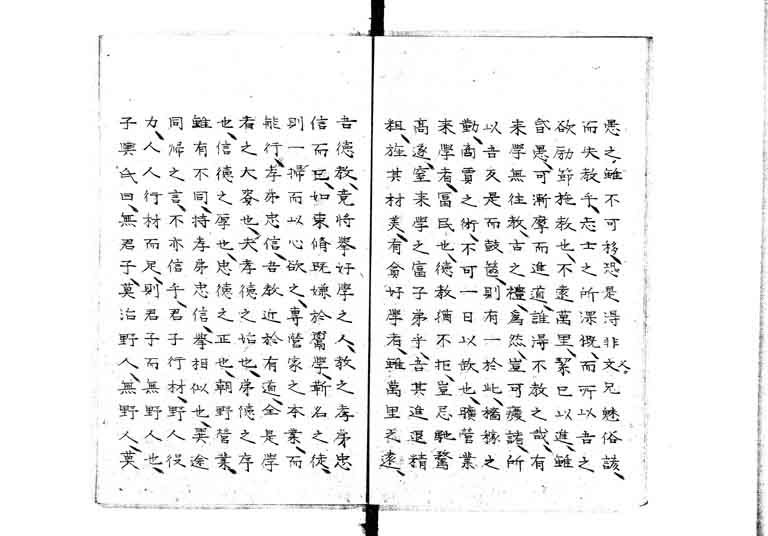 愚之雖不可移恐是得非文兄魅俗該
而失教乎志士之所深慨而所以吾之
欲励節施教也不遠萬里絜已以進雖
昏愚可漸摩而進道誰得不教之哉有
来學無往教古之禮為然豈可獲諸所
以吾亥是而鼓篋則有一於此播稼之
勤商賈之術不可一日以欽也獷營業
来學者富民也徳教猶不拒豈忌馳騖
高遂室来學之富子弟乎吾其進退精
粗旌其材美有貪好學者雖萬里无遠
吾徳教竟將挙好學之人教之孝弟忠
信而已如束脩既嫌於鬻學靳名之徒
則一掃而以心欲之専營家之本業而
能行孝弟忠信吾教近於有道全是學
者之大麥也夫孝徳之始也弟徳之序
也信徳之厚也忠徳之正也朝野營業
雖有不同持孝弟忠信挙相似也異途
同帰之言不亦信乎君子行材野人役
力人人行材而足則君子而無野人也
子輿氏曰無君子莫治野人無野人莫